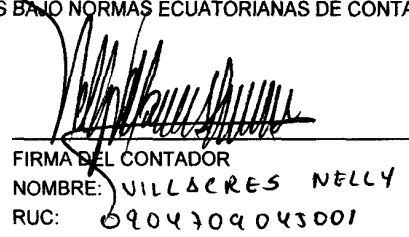 S BAJO NORMAS ECUATORIANAS DE CONTA
FIRMA DEL CONTADOR
NOMBRE: VILLACRES NELLY
RUC: 0904709043001